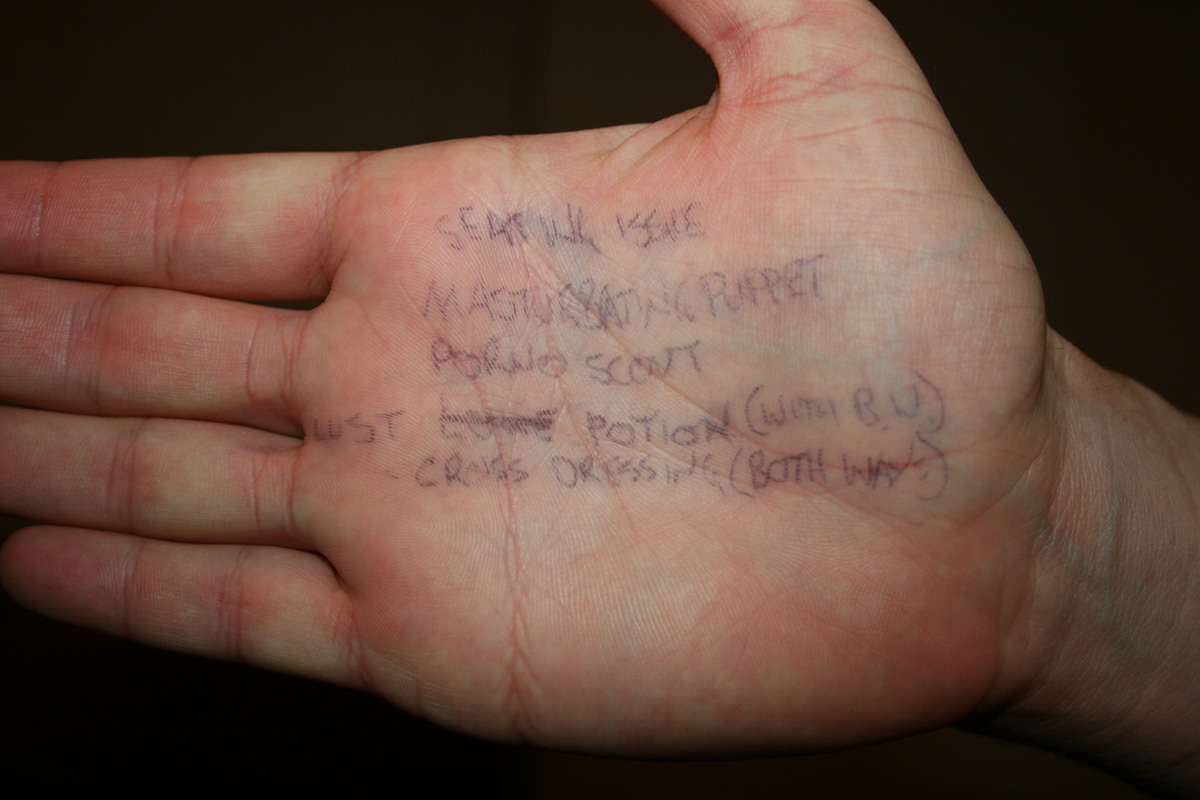 ISSUE
MASTURBATING PUPPET
PORNO SCOUT
LUST POTION (WITH B.U.)
CROSS DRESSING (BOTH WAYS)